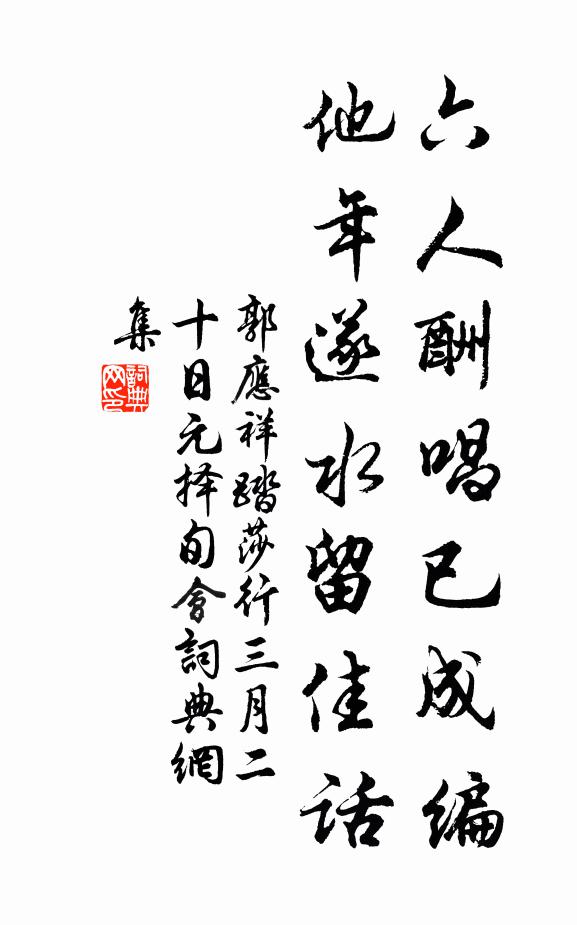 六人酬唱已成编
他年遂水留佳话
郭應祥踏莎行三月二
十日元择旬會詞典網
集
詞典
网印